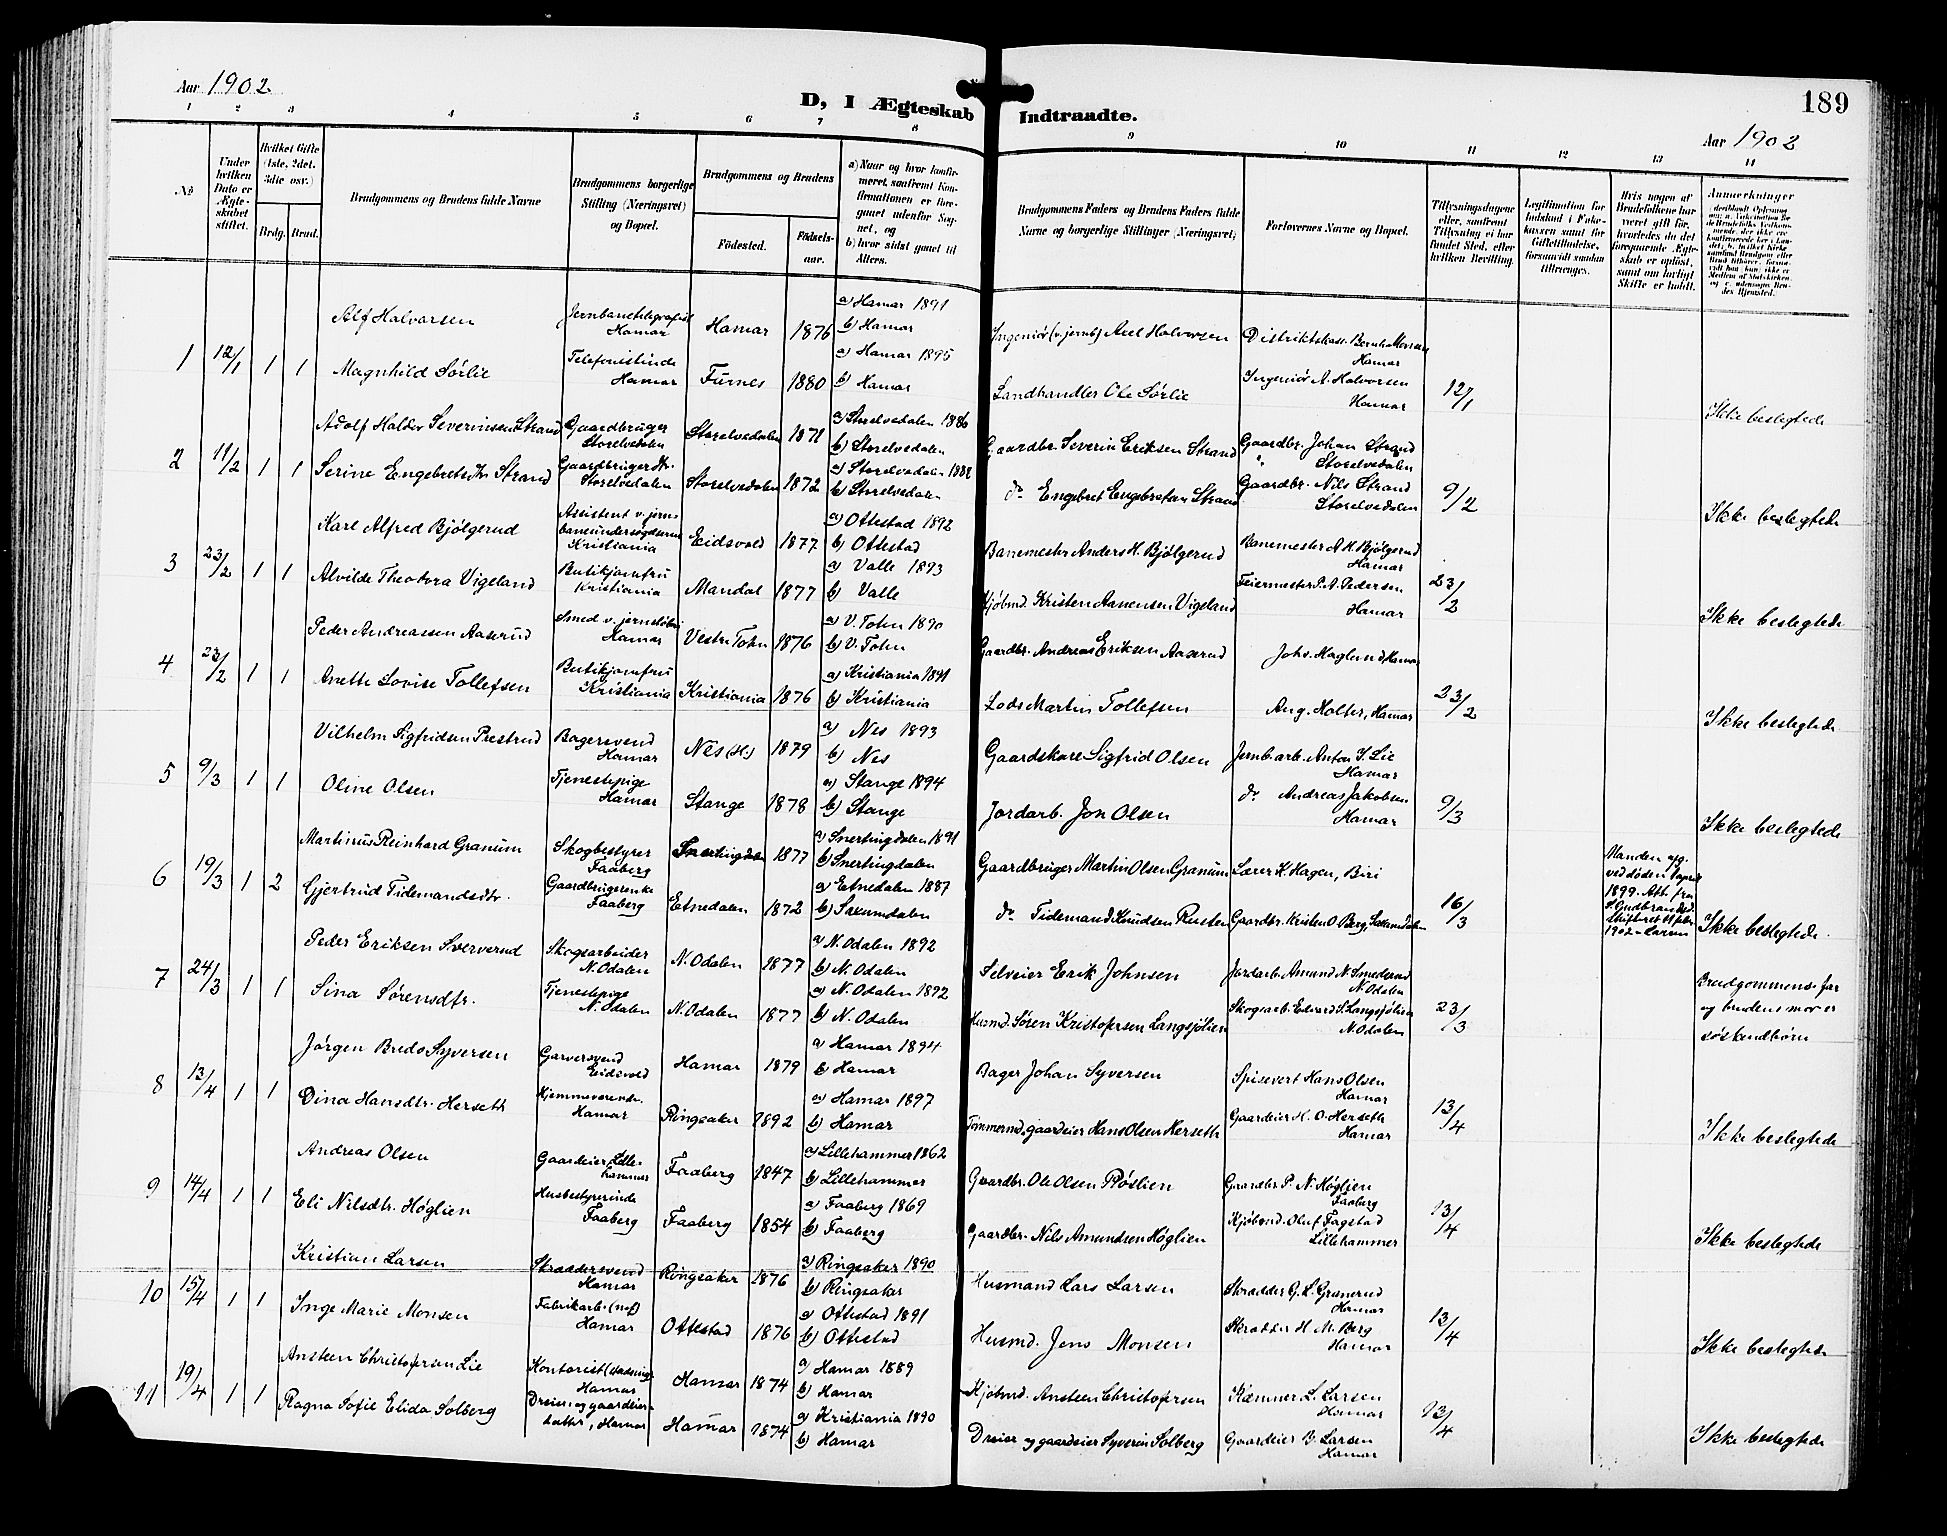 Aar 1902
D, I Ægteskab Indtraadte.
189
Aar 1902
1 2 3 4 5 6 7 8 9 10 11 12 13 14
No
Under hvilken Dato er Ægteskabet stiftet.
Hvilket Gifte (1ste, 2det, 3die osv.)
Brdg. Brud.
Brudgommens og Brudens fulde Navne
Brudgommens borgerlige Stilling (Næringsvei) og Bopæl.
Brudgommens og Brudens
Fødested.
Fødselsaar.
a) Naar og hvor konfirmeret, saafremt Konfirmationen er foregaaet udenfor Sognet, og
b) hvor sidst gaaet til Alters.
Brudgommens Faders og Brudens Faders fulde Navne og borgerlige Stillinger (Næringsvei)
Forlovernes Navne og Bopæl.
Tillysningsdagene eller, saafremt Tillysning ei har fundet Sted, efter hvilken Bevilling.
Legitimation for Indskud i Enkekassen samt for Giftetilladelse, forsaavidt saadan tiltrænges.
Hvis nogen af Brudefolkene har været gift før, hvorledes da det foregaaende Ægteskab er opløst, samt om lovligt Skifte er holdt.
Anmærkninger
1 12/1 1 1
Alf Halvorsen Jernbanetelegrafist Hamar Hamar 1876 a) Hamar 1891 b) Hamar Ingeniør (v. jernb) Axel Halvorsen Hamar
Magnhild Sørlie Telefonistinde Hamar Furnes 1880 a) Hamar 1895 b) Hamar Landhandler Ole Sørlie Ingeniør A. Halvorsen Hamar 12/1 Ikke beslegtede
2 11/2 1 1
Adolf Haldor Severinsen Strand Gaardbruger Storelvedalen Storelvedalen 1871 a) Storelvedalen 1886 b) Storelvedalen Gaardbr. Severin Eriksen Strand Gaardbr. Johan Strand Storelvedalen
Serine Engebretsdtr. Strand Gaardbruger dtr. Storelvedalen Storelvedalen 1872 a) Storelvedalen 1888 b) Storelvedalen do Engebret Engebretsen Strand Gaardbr. Nils Strand Storelvedalen 9/2 Ikke beslegtede
3 23/2 1 1
Karl Alfred Bjölgerud Assistent v. jernbaneundersøgelserne Kristiania Eidsvold 1877 a) Ottestad 1892 b) Ottestad Banemester Anders H. Bjölgerud Banemester A H. Bjölgerud Hamar
Alvilde Theodora Vigeland Butikjomfru Kristiania Mandal 1877 a) Valle 1893 b) Valle Kjöbmd. Kristen Aanensen Vigeland Feiermester P. A. Pedersen Hamar 23/2 Ikke beslegtede
4 23/2 1 1
Peder Andreassen Aaserud Smed v. jernstöberi Hamar Vestre Toten 1876 a) V. Toten 1890 b) V. Toten Gaardbr. Andreas Eriksen Aaserud Johs. Haglund Hamar
Anette Lovise Tollefsen Butikjomfru Kristiania Kristiania 1876 a) Kristiania 1891 b) Kristiania Lods Martin Tollefsen Aug. Holter, Hamar 23/2 Ikke beslegtede
5 9/3 1 1
Vilhelm Sigfridsen Prestrud Bagersvend Hamar Nes (H.) 1879 a) Nes 1893 b) Nes Gaardskare Sigfrid Olsen Jernb. arb. Anton I. Lie Hamar
Oline Olsen Tjenestepige Hamar Stange 1878 a) Stange 1894 b) Stange Jordarb. Jon Olsen do Andreas Jakobsen Hamar 9/3 Ikke beslegtede
6 19/3 1 2
Martinus Reinhard Granum Skogbestyrer Faaberg Snertingdalen 1877 a) Snertingdalen 1891 b) Snertingdalen Gaardbruger Martin Olsen Granum Lærer K. Hagen, Biri
Gjertrud Tidemandsdtr. Gaardbrugerenke Faaberg Etnedalen 1872 a) Etnedalen 1887 b) Saxumdalen do Tidemand Knudsen Rusten Gaardbr. Kristen O. Berg, Saxumdalen 16/3 Manden afg. ved døden 1899. Att. fra S. Gudbrandsd. 1902 Ikke beslegtede.
7 24/3 1 1
Peder Eriksen Sververud Skogsarbeider N. Odalen N. Odalen 1877 a) N. Odalen 1892 b) N. Odalen Selveier Erik Johnsen Jordarb. Amund N. Smedsrud N. Odalen
Sina Sørensdtr. Tjenestepige N. Odalen N. Odalen 1877 a) N. Odalen 1892 b) N. Odalen Husmd. Sören Kristofersen Langsjölien Skogsarb. Edvard S. Langsjölien N. Odalen 23/3 Brudgommens far og brudens mor er søskendbørn
8 13/4 1 1
Jörgen Bredo Syversen Garversvend Eidsvold Hamar 1879 a) Hamar 1894 b) Hamar Bager Johan Syversen Spisevert Hans Olsen Hamar
Dina Hansdtr. Herseth Hjemmeværende Hamar Ringsaker 1892 a) Hamar 1897 b) Hamar Tømmermd, gaardeier Hans Olsen Herseth Gaardeier H. O. Herseth Hamar 13/4 Ikke beslegtede
9 14/4 1 1
Andreas Olsen Gaardeier, Lillehammer Faaberg 1847 a) Lillehammer 1862 b) Lillehammer Gaardbr. Ole Olsen Röslien Gaardbr P. N. Høglien Faaberg
Eli Nilsdtr. Høglien Husbestyrerinde Faaberg Faaberg 1854 a) Faaberg 1869 b) Faaberg Gaardbr. Nils Amundsen Høglien Kjöbmd. Oluf Fagstad Lillehammer 13/4 Ikke beslegtede
10 15/4 1 1
Kristian Larsen Skræddersvend Hamar Ringsaker 1876 a) Ringsaker 1890 b) Ringsaker Husmand Lars Larsen Skrædder G. L. Granerud Hamar
Inge Marie Monsen Fabrikarb. Hamar Ottestad 1876 a) Ottestad 1891 b) Ottestad Husmd. Jens Monsen Skrædder H. M. Berg Hamar 13/4 Ikke beslegtede
11 19/4 1 1
Ansteen Christofersen Lie Kontorist Hamar Hamar 1874 a) Hamar 1889 b) Hamar Kjöbmd. Ansteen Christofersen Kæmner L. Larsen Hamar
Ragna Sofie Elida Solberg Dreier og gaardeierdatter, Hamar Hamar 1874 a) Kristiania 1890 b) Hamar Dreier og gaardeier Syverin Solberg Gaardeier Larsen Hamar 13/4 Ikke beslegtede